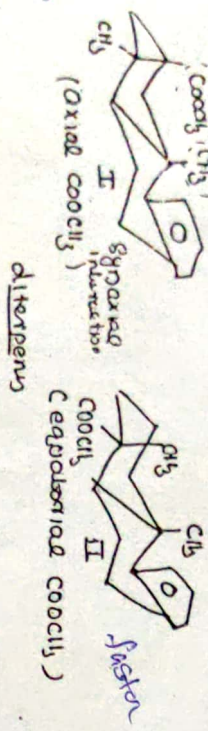 COOCH₃ CH₃
CH₃
I
synaxial
interaction
(axial COOCH₃)
CH₃
CH₃
COOCH₃
II
faster
(equatorial COOCH₃)
diterpens